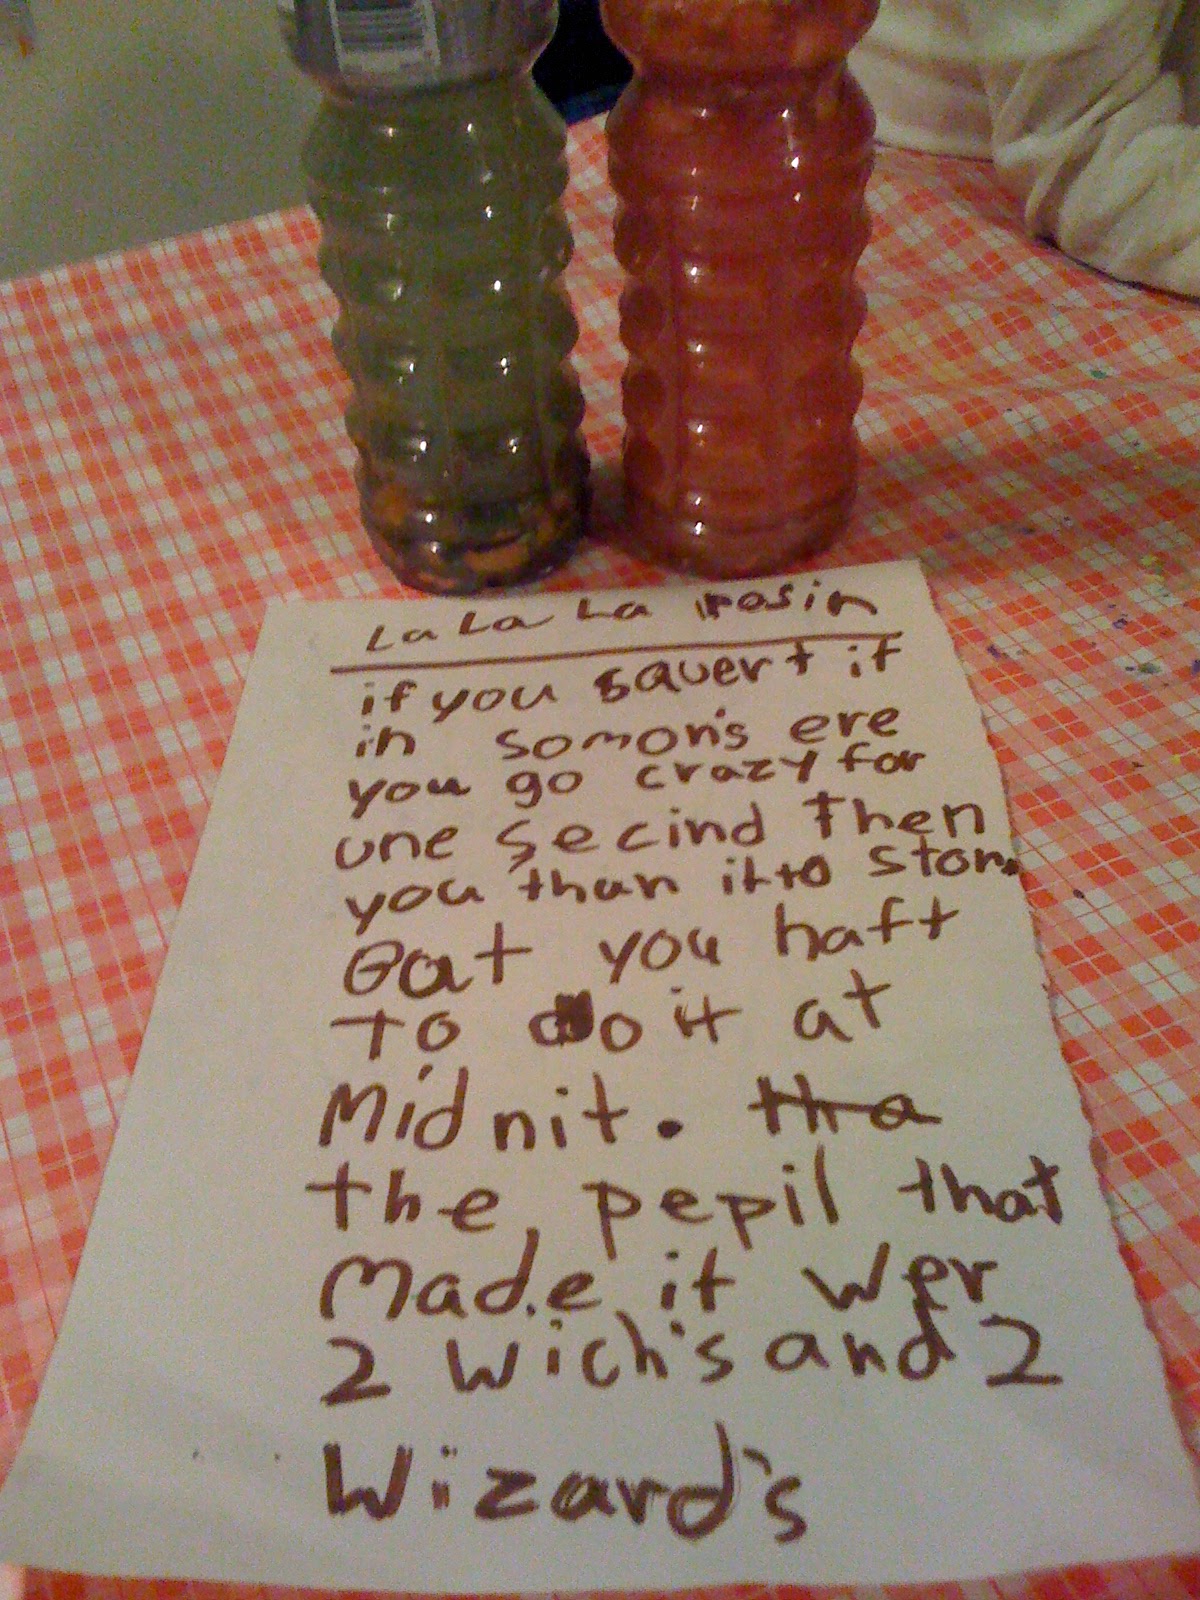 La La La posin
if you squert it
in somon's ere
you go crazy for
one secind then
you than it to ston.
Bat you haft
to do it at
Midnit. tha
the pepil that
Made it wer
2 wich's and 2
Wizard's